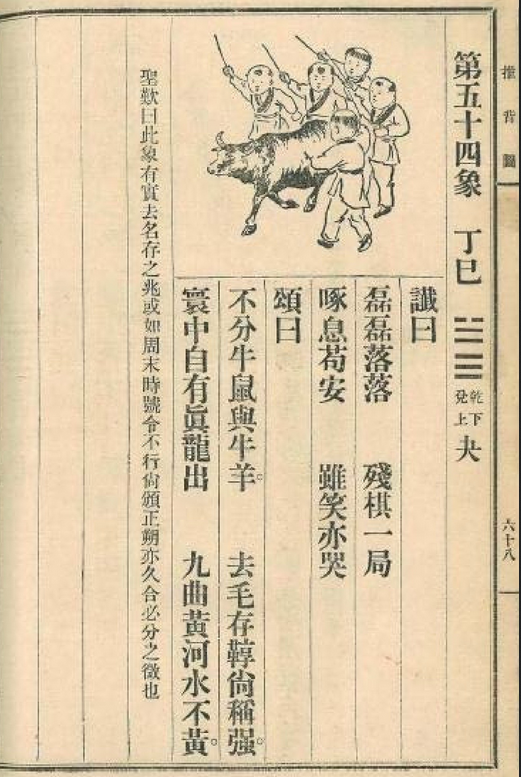 推背圖
六十八
第五十四象 丁巳 ䷪ 乾下 兌上 夬
讖曰
磊磊落落 殘棋一局
啄息苟安 雖笑亦哭
頌曰
不分牛鼠與牛羊。 去毛存鞟尙稱强。
寰中自有眞龍出 九曲黃河水不黃。
聖歎曰此象有實去名存之兆或如周末時號令不行尙頒正朔亦久合必分之徵也